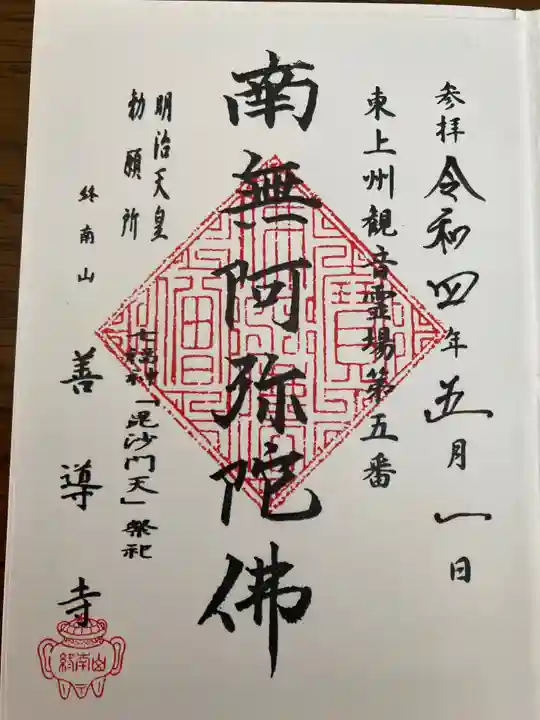 参拝 令和四年五月一日
東上州観音霊場第五番
南無阿弥陀佛
明治天皇
勅願所
七福神「毘沙門天」祭祀
終南山
善導寺
終南山